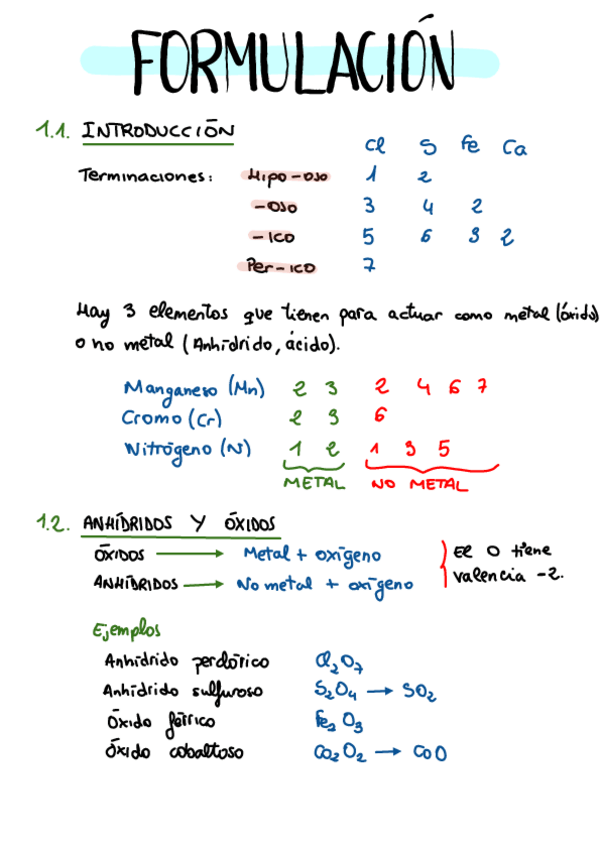 FORMULACIÓN
1.1. INTRODUCCIÓN
Cl S Fe Ca
Terminaciones: Hipo-oso 1 2
-oso 3 4 2
-ico 5 6 3 2
Per-ico 7
Hay 3 elementos que tienen para actuar como metal (óxido)
o no metal (Anhídrido, ácido).
Manganeso (Mn) 2 3 2 4 6 7
Cromo (Cr) 2 3 6
Nitrógeno (N) 1 2 1 3 5
METAL NO METAL
1.2. ANHÍDRIDOS Y ÓXIDOS
ÓXIDOS → Metal + oxígeno
ANHÍDRIDOS → No metal + oxígeno
El O tiene
valencia -2.
Ejemplos
Anhídrido perclórico Cl₂O₇
Anhídrido sulfuroso S₂O₄ → SO₂
Óxido férrico Fe₂O₃
Óxido cobaltoso Co₂O₂ → CoO